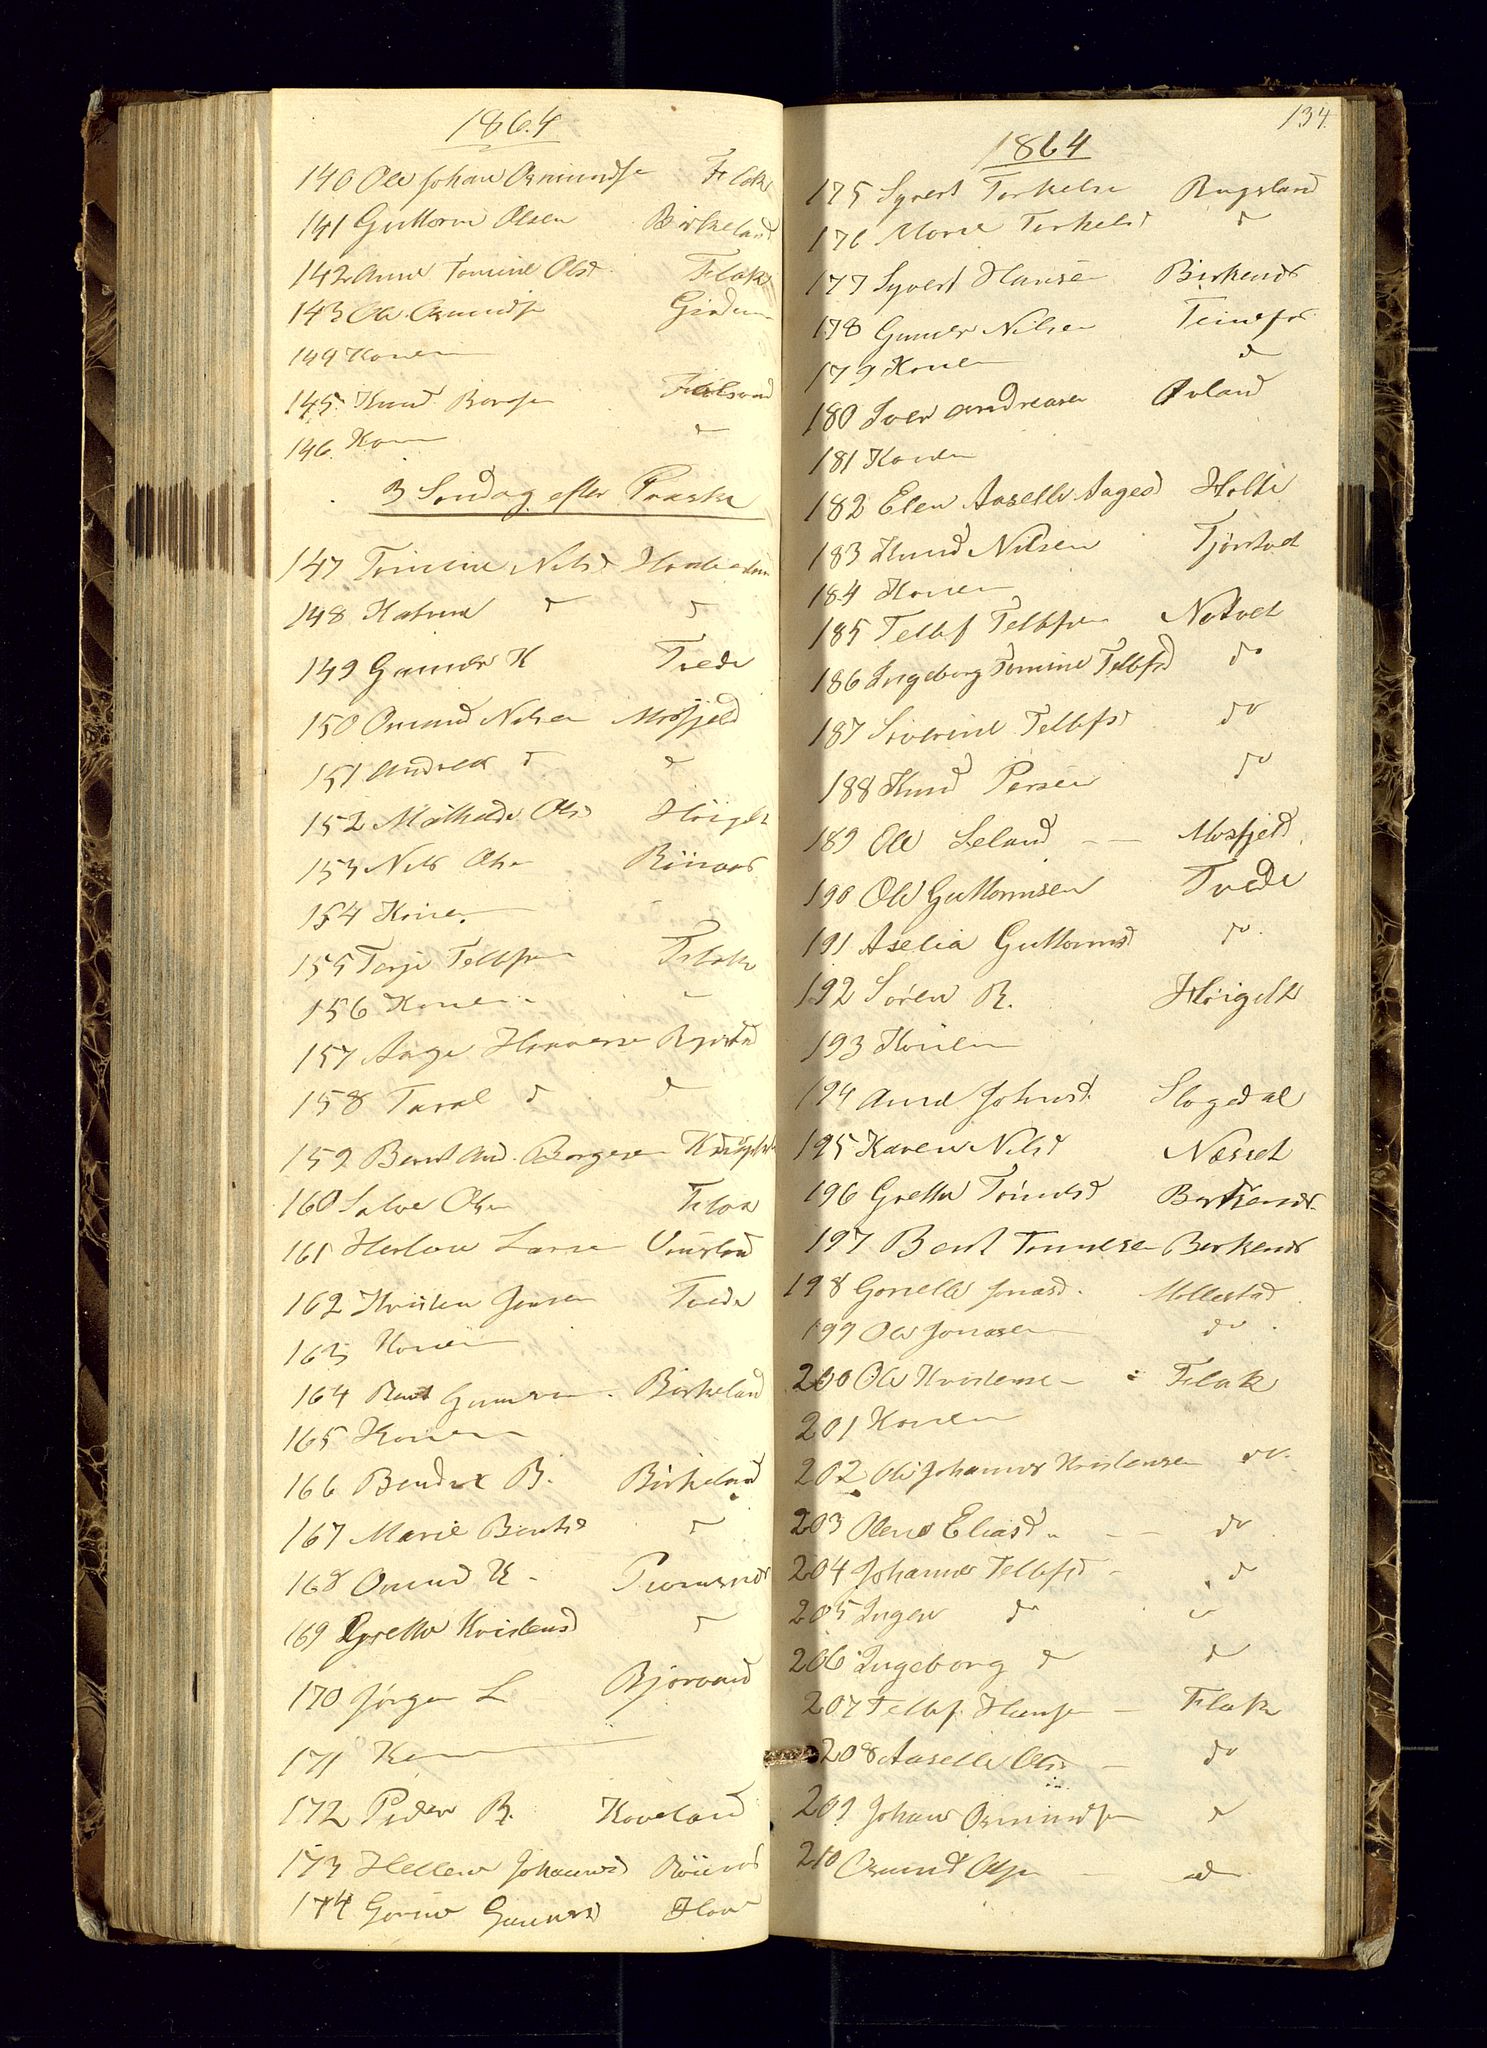 1864
140 Ole Johan Osmunds Flak
141 Guttorm Olsen Birkeland
142 Anne Tomine Olsd. Flak
143 Ole Osmunds
144 Konen
145 Knud
146 Kone
3 Søndag efter Paaske
147 Tomine Nilsd
148 d d
149 Gunder K Tvede
150 Osmund Nilsen Mosfjeld
151 Andreas d d
152 Mathilde Olsd Høigilt
153 Nils Olsen
154 Konen
155 Terje Tellefsen Flak
156 Konen
157 Aage
158 Taral d d
159 Bernt And. Borgesen
160 Salve Olsen Flaa
161 Larsen
162 Kristen Jensen Tvede
163 Konen
164 Bent Gunders Birkeland
165 Konen
166 Bendix B. Birkeland
167 Marie Bentsd d
168 Osmund K
169 Grethe Kristensd d
170 Jørgen L Bjorvand
171 Kone
172 Peder B. Hoveland
173 Hellene Johannesd
174 Gunvor Gundersd Flaa
134.
1864
175 Syvert Torkelsen Rugsland
176 Marie Torkelsd d
177 Syvert Hansen Birkenes
178 Gunder Nilsen Teinefos
179 Konen d
180 Iver Andreasen Øvland
181 Konen
182 Elen Aaselle Aagesd Holte
183 Knud Nilsen
184 Konen
185 Tellef Tellefsen
186 Ingeborg Tomine Tellefsd do
187 Severine Tellefsd do
188 Knud Persen do
189 Ole Leland Mosfjeld
190 Ole Guttormsen Tvede
191 Aselia Guttormsd do
192 Søren R. Høigilt
193 Konen
194 Anne Johnsd. Slogedal
195 Karen Nilsd Næset
196 Grethe Tomesd Birkenes
197 Bent Tomesen Birkenes
198 Gonelle Jonasd. Mollestad
199 Ole Jonasen do
200 Ole Kristensen Flak
201 Konen
202 Ole Johannes Kristensen do.
203 Olene Eliasd do
204 Johanne Tellefsd d
205 Inger do
206 Ingeborg d d
207 Tellef. Hans Flak
208 Aaselle Olsd do
209 Johan Osmunds d
210 Osmund Ols d